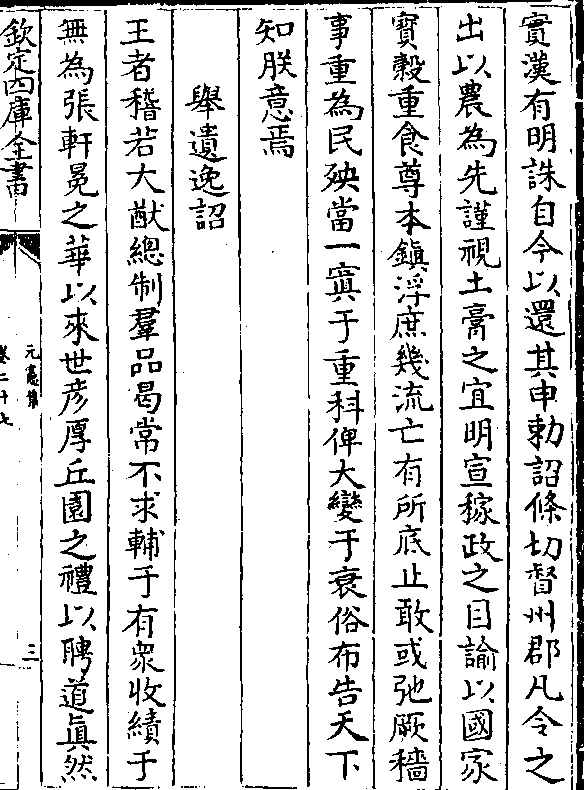 實漢有明誅自今以還其申勅詔條切督州郡凡令之
出以農為先謹視土膏之宜明宣稼政之目諭以國家
寳糓重食尊本鎮浮庶幾流亡有所底止敢或弛厥穡
事重為民殃當一寘于重科俾大變于衰俗布告天下
知朕意焉
舉遺逸詔
王者稽若大猷總制羣品曷常不求輔于有衆收績于
無為張軒冕之華以來世彦厚丘園之禮以聘道眞然
欽定四庫全書
元憲集
卷二十七
三